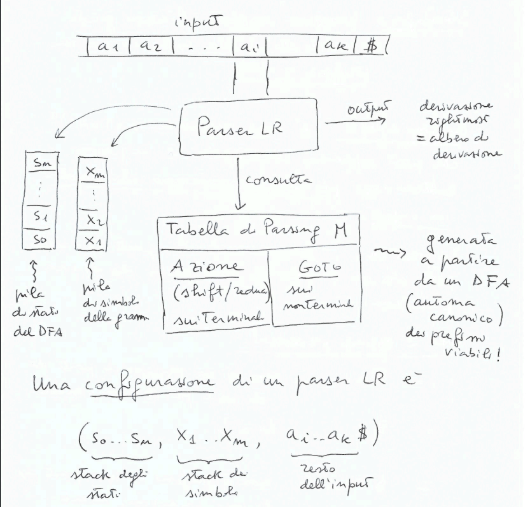 input
a1 a2 . . . ai ak $
Parser LR
output
derivazione
rightmost
= albero di
derivazione
consulta
Sm
⋮
S1
S0
Xm
⋮
X2
X1
pila
di stati
del DFA
pila
di simboli
della gramm
Tabella di Parsing M
Azione
(shift/reduce)
sui Terminali
GOTO
sui
nonterminali
generata
a partire
da un DFA
(automa
canonico)
dei prefissi
viabili!
Una configurazione di un parser LR è
(S0...Sm, X1..Xm, ai..ak $)
stack degli
stati
stack dei
simboli
resto
dell'input